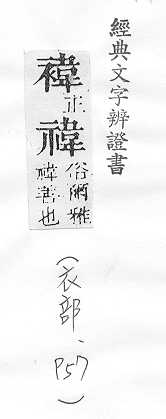 經典文字辨證書
褘正
禕俗爾雅
禕善也
(衣部、P57)